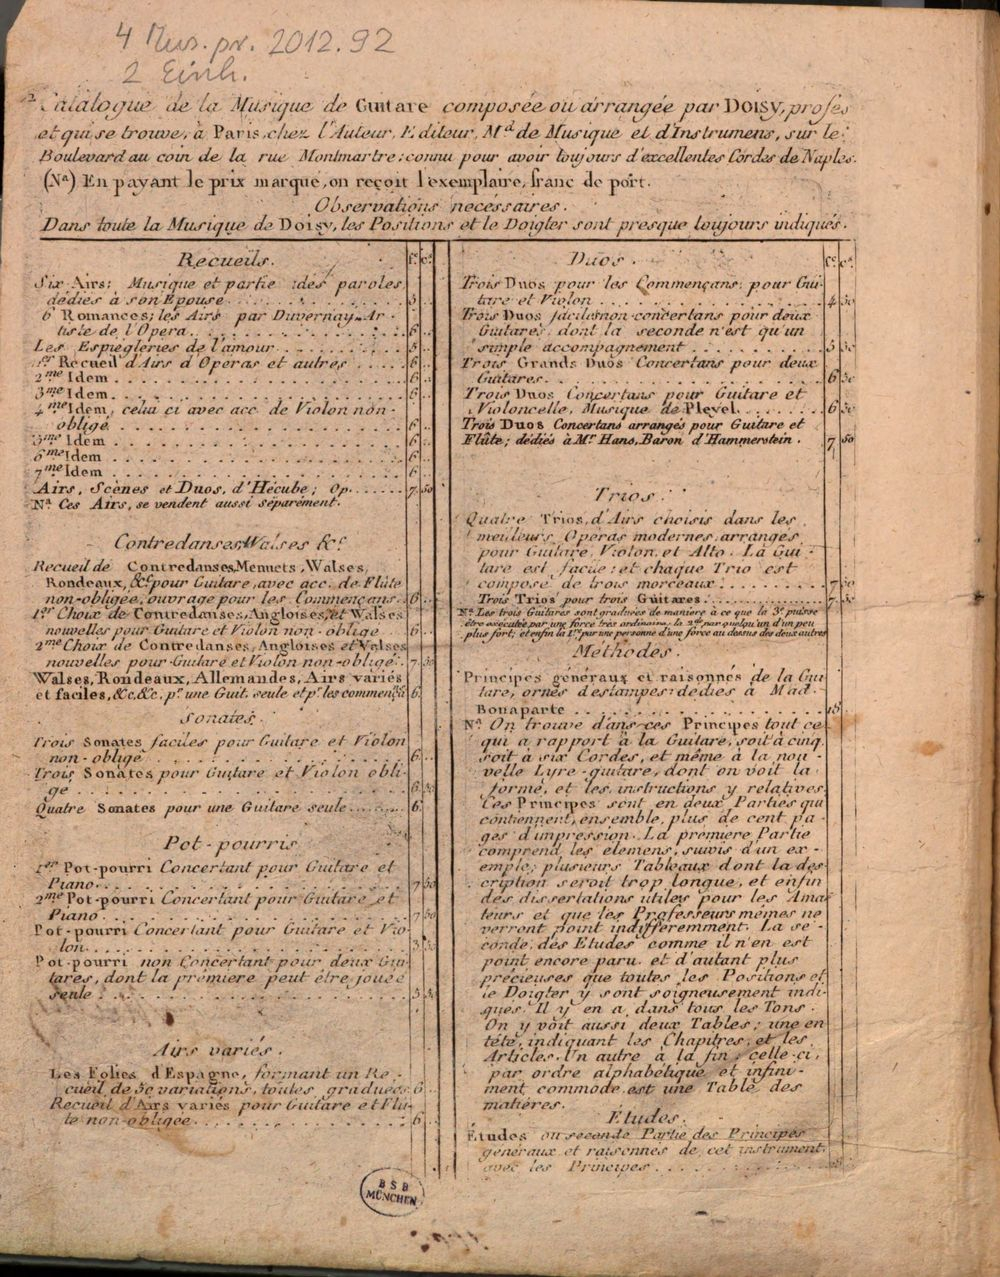 4 Mus.pr. 2012.92
2 Einh.
2
Catalogue de la Musique de Guitare composée ou arrangée par DOISY, profes
et qui se trouve, à Paris chez l'Auteur, Editeur, Md. de Musique et d'Instrumens, sur le
Boulevard au coin de la rue Montmartre; connu pour avoir toujours d'excellentes Cordes de Naples.
(Na) En payant le prix marqué, on reçoit l'exemplaire, franc de port.
Observations nécessaires.
Dans toute la Musique de Doisy, les Positions et le Doigter sont presque toujours indiqués.
Recueils. fc. cs.
Six Airs; Musique et partie des paroles,
dédiés à son Epouse 5
6 Romances; les Airs par Duvernay, Ar-
tiste de l'Opera 6
Les Espiègleries de l'amour 5
1er Recueil d'Airs d'Operas et autres 6
2me Idem 6
3me Idem 6
4me Idem, celui ci avec acc. de Violon non-
obligé 6
5me Idem 6
6me Idem 6
7me Idem 6
Airs, Scènes et Duos, d'Hécube; Op. 7 50
Na. Ces Airs, se vendent aussi séparément.
Contredanses, Walses &c.
Recueil de Contredanses, Menuets, Walses,
Rondeaux, &c. pour Guitare, avec acc. de Flûte
non-obligée, ouvrage pour les Commençans 6
1er Choix de Contredanses, Angloises, et Walses
nouvelles pour Guitare et Violon non-obligé 6
2me Choix de Contredanses, Angloises et Walses
nouvelles pour Guitare et Violon non-obligé. 7 50
Walses, Rondeaux, Allemandes, Airs variés
et faciles, &c, &c, pr. une Guit. seule et pr. les commençs 6
Sonates.
Trois Sonates faciles pour Guitare et Violon
non-obligé 6
Trois Sonates pour Guitare et Violon obli-
gé 6 50
Quatre Sonates pour une Guitare seule 6
Pot-pourris
1er Pot-pourri Concertant pour Guitare et
Piano 7 50
2me Pot-pourri Concertant pour Guitare et
Piano 7 50
Pot-pourri Concertant pour Guitare et Vio-
lon 3 50
Pot-pourri non Concertant pour deux Gui-
tares, dont la prémiere peut être jouée
seule 3 50
Airs variés.
Les Folies d'Espagne, formant un Re-
cueil de 50 variations, toutes graduées 6
Recueil d'Airs variés pour Guitare et Flu-
te non-obligée 6
Duos. fc. cs.
Trois Duos pour les Commençans; pour Gui-
tare et Violon 4 50
Trois Duos faciles non-concertans pour deux
Guitares, dont la seconde n'est qu'un
simple accompagnement 5 50
Trois Grands Duos Concertans pour deux
Guitares 6 50
Trois Duos Concertans pour Guitare et
Violoncelle, Musique de Pleyel 6 50
Trois Duos Concertans arrangés pour Guitare et
Flûte; dédiés à Mr. Hans, Baron d'Hammerstein. 7 50
Trios.
Quatre Trios, d'Airs choisis dans les
meilleurs Opéras modernes, arrangés
pour Guitare, Violon, et Alto. La Gui-
tare est facile; et chaque Trio est
composé de trois morceaux 7 50
Trois Trios pour trois Guitares 7 50
Na. Les trois Guitares sont graduées de maniere à ce que la 3e puisse
être exécutée par une force très ordinaire, la 2de par quelqu'un d'un peu
plus fort; et enfin la 1re par une personne d'une force au dessus des deux autres
Méthodes.
Principes généraux et raisonnés de la Gui
tare, ornés d'estampes; dédiés à Mad.
Bonaparte 18
Na. On trouve dans ces Principes tout ce
qui a rapport à la Guitare, soit à cinq,
soit à six Cordes, et même à la nou-
velle Lyre-guitare, dont on voit la
forme, et les instructions y relatives.
Ces Principes sont en deux Parties qui
contiennent, ensemble, plus de cent pa-
ges d'impression. La prémiere Partie
comprend les elémens, suivis d'un ex-
emple; plusieurs Tableaux dont la des-
cription seroit trop longue, et enfin
des dissertations utiles pour les Ama-
teurs et que les Professeurs mêmes ne
verront point indifféremment. La se-
conde, des Etudes comme il n'en est
point encore paru, et d'autant plus
précieuses que toutes les Positions et
le Doigter y sont soigneusement indi-
qués. Il y en a dans tous les Tons.
On y voit aussi deux Tables; une en
tête, indiquant les Chapitres, et les
Articles. l'n autre à la fin; celle-ci,
par ordre alphabétique et infini-
ment commode est une Table des
matières.
Etudes.
Études ou seconde Partie des Principes
généraux et raisonnés de cet instrument
avec les Principes
BSB
MÜNCHEN